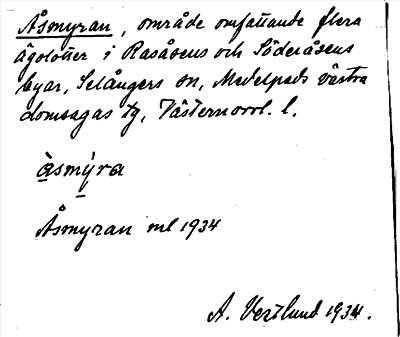 Åsmyran, område omfattande flera
ägolotter i Rasåsens och Söderåsens
byar, Selångers sn, Medelpads västra
domsagas tg, Västernorrl. l.
àsmýra
Åsmyran ml 1934
A. Vestlund 1934.